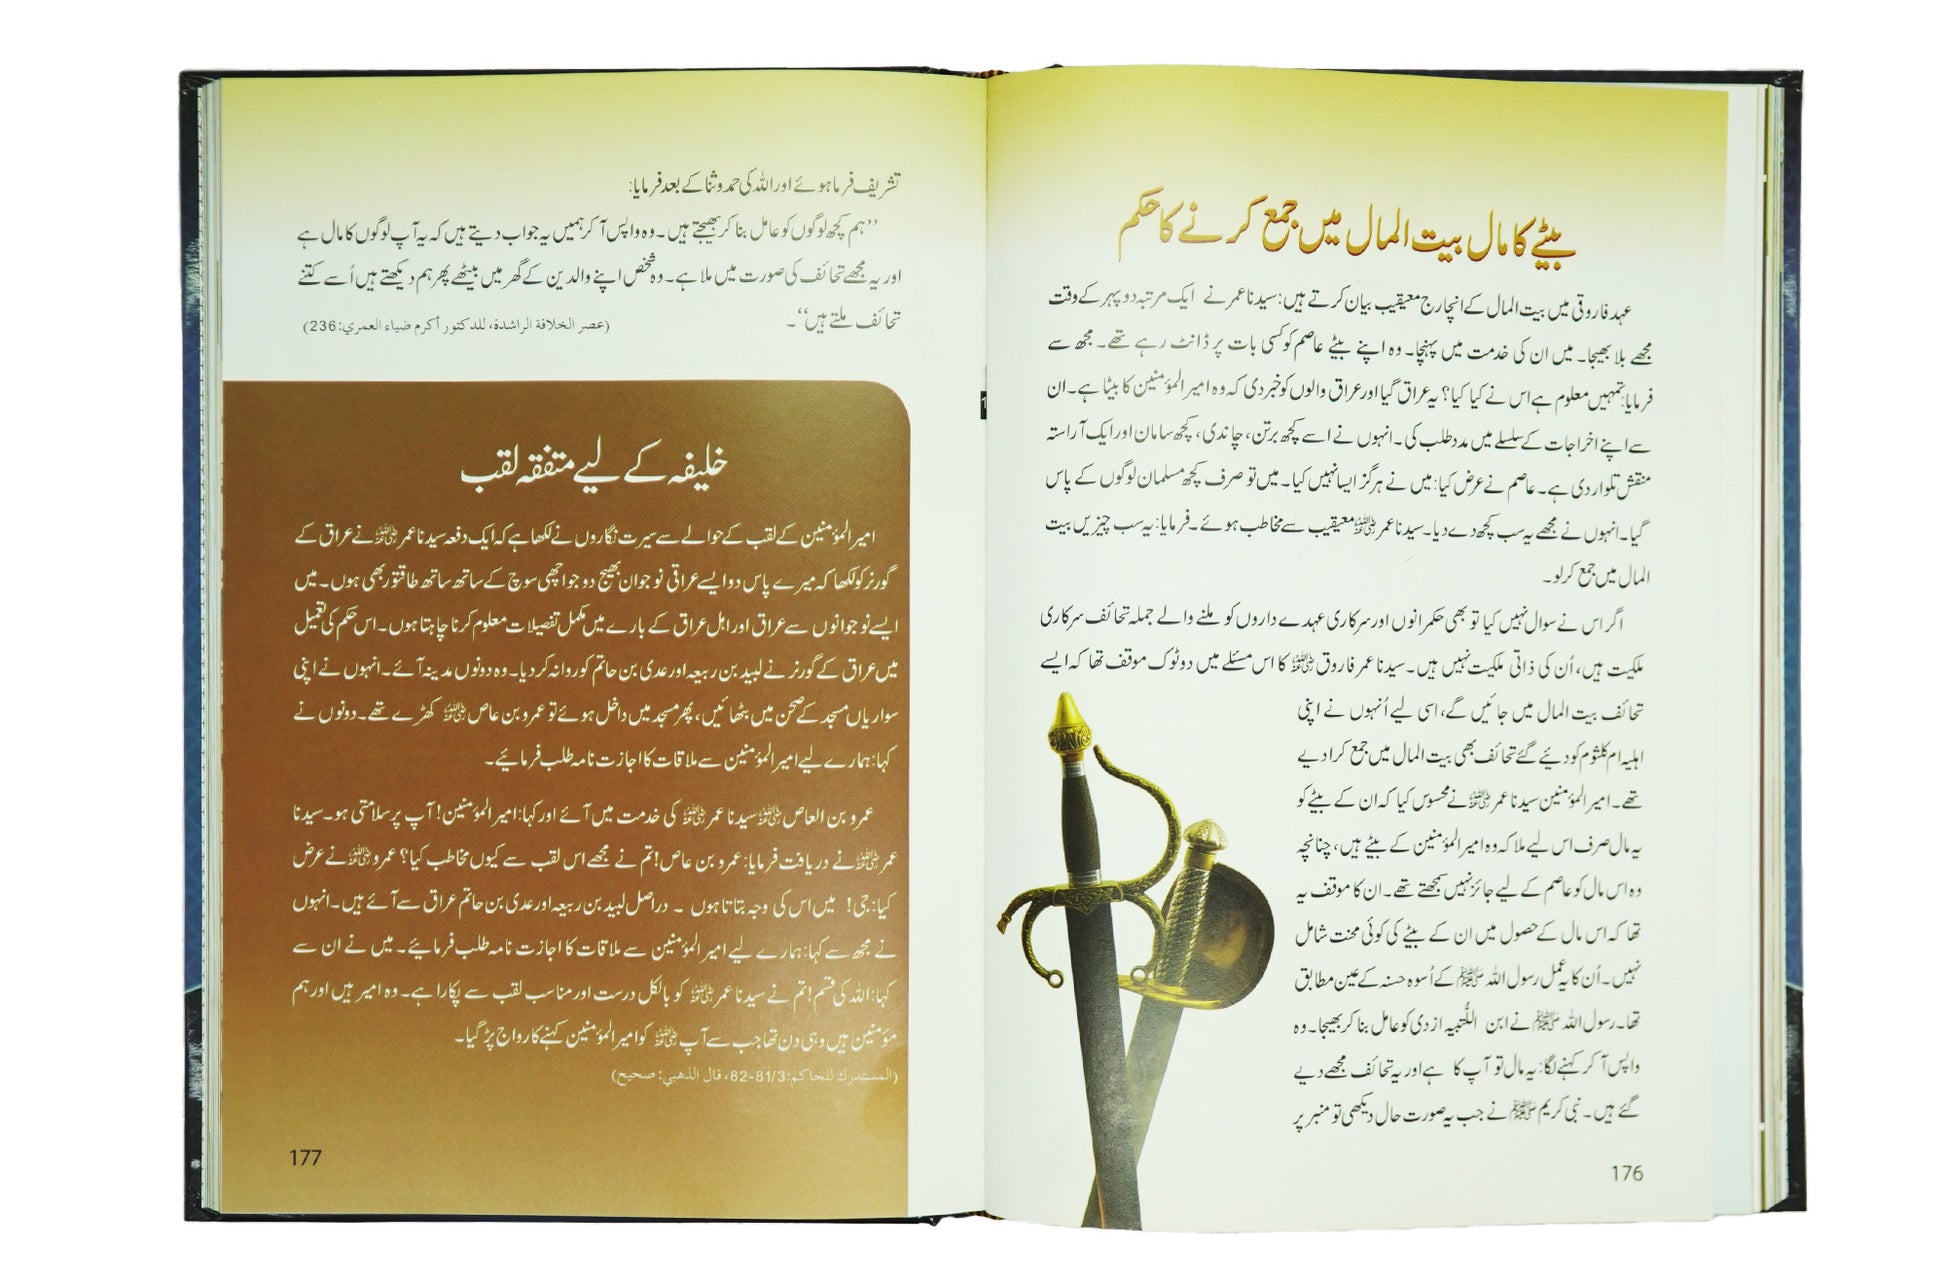 بیٹے کا مال بیت المال میں جمع کرنے کا حکم
عہد فاروقی میں بیت المال کے انچارج معیقیب بیان کرتے ہیں: سیدنا عمر نے ایک مرتبہ دو پہر کے وقت
مجھے بلا بھیجا۔ میں ان کی خدمت میں پہنچا۔ وہ اپنے بیٹے عاصم کو کسی بات پر ڈانٹ رہے تھے۔ مجھ سے
فرمایا: تمہیں معلوم ہے اس نے کیا کیا؟ یہ عراق گیا اور عراق والوں کو خبر دی کہ وہ امیر المؤمنین کا بیٹا ہے۔ ان
سے اپنے اخراجات کے سلسلے میں مدد طلب کی۔ انہوں نے اسے کچھ برتن، چاندی، کچھ سامان اور ایک آراستہ
منقش تلوار دی ہے۔ عاصم نے عرض کیا: میں نے ہرگز ایسا نہیں کیا۔ میں تو صرف کچھ مسلمان لوگوں کے پاس
گیا۔ انہوں نے مجھے یہ سب کچھ دے دیا۔ سیدنا عمر رضی اللہ عنہ معیقیب سے مخاطب ہوئے۔ فرمایا: یہ سب چیزیں بیت
المال میں جمع کرلو۔
اگر اس نے سوال نہیں کیا تو بھی حکمرانوں اور سرکاری عہدے داروں کو ملنے والے جملہ تحائف سرکاری
ملکیت ہیں، اُن کی ذاتی ملکیت نہیں ہیں۔ سیدنا عمر فاروق رضی اللہ عنہ کا اس مسئلے میں دوٹوک موقف تھا کہ ایسے
تحائف بیت المال میں جائیں گے، اسی لیے اُنہوں نے اپنی
اہلیہ ام کلثوم کو دیئے گئے تحائف بھی بیت المال میں جمع کرا دیے
تھے۔ امیر المؤمنین سیدنا عمر رضی اللہ عنہ نے محسوس کیا کہ ان کے بیٹے کو
یہ مال صرف اس لیے ملا کہ وہ امیر المؤمنین کے بیٹے ہیں، چنانچہ
وہ اس مال کو عاصم کے لیے جائز نہیں سمجھتے تھے۔ ان کا موقف یہ
تھا کہ اس مال کے حصول میں ان کے بیٹے کی کوئی محنت شامل
نہیں۔ اُن کا یہ عمل رسول اللہ ﷺ کے اُسوہ حسنہ کے عین مطابق
تھا۔ رسول اللہ ﷺ نے ابن اللُّتبیہ ازدی کو عامل بنا کر بھیجا۔ وہ
واپس آ کر کہنے لگا: یہ مال تو آپ کا ہے اور یہ تحائف مجھے دیے
گئے ہیں۔ نبی کریم ﷺ نے جب یہ صورت حال دیکھی تو منبر پر
176
تشریف فرما ہوئے اور اللہ کی حمد و ثنا کے بعد فرمایا:
’’ہم کچھ لوگوں کو عامل بنا کر بھیجتے ہیں۔ وہ واپس آ کر ہمیں یہ جواب دیتے ہیں کہ یہ آپ لوگوں کا مال ہے
اور یہ مجھے تحائف کی صورت میں ملا ہے۔ وہ شخص اپنے والدین کے گھر میں بیٹھے پھر ہم دیکھتے ہیں اُسے کتنے
تحائف ملتے ہیں‘‘۔ (عصر الخلافة الراشدة، للدكتور أكرم ضياء العمري: 236)
خلیفہ کے لیے متفقہ لقب
امیر المؤمنین کے لقب کے حوالے سے سیرت نگاروں نے لکھا ہے کہ ایک دفعہ سیدنا عمر رضی اللہ عنہ نے عراق کے
گورنر کو لکھا کہ میرے پاس دو ایسے عراقی نوجوان بھیج دو جو اچھی سوچ کے ساتھ ساتھ طاقتور بھی ہوں۔ میں
ایسے نوجوانوں سے عراق اور اہل عراق کے بارے میں مکمل تفصیلات معلوم کرنا چاہتا ہوں۔ اس حکم کی تعمیل
میں عراق کے گورنر نے لبید بن ربیعہ اور عدی بن حاتم کو روانہ کر دیا۔ وہ دونوں مدینہ آئے۔ انہوں نے اپنی
سواریاں مسجد کے صحن میں بٹھائیں، پھر مسجد میں داخل ہوئے تو عمرو بن عاص رضی اللہ عنہ کھڑے تھے۔ دونوں نے
کہا: ہمارے لیے امیر المؤمنین سے ملاقات کا اجازت نامہ طلب فرمائیے۔
عمرو بن العاص رضی اللہ عنہ سیدنا عمر رضی اللہ عنہ کی خدمت میں آئے اور کہا: امیر المؤمنین! آپ پر سلامتی ہو۔ سیدنا
عمر رضی اللہ عنہ نے دریافت فرمایا: عمرو بن عاص! تم نے مجھے اس لقب سے کیوں مخاطب کیا؟ عمرو رضی اللہ عنہ نے عرض
کیا: جی! میں اس کی وجہ بتاتا ہوں ۔ دراصل لبید بن ربیعہ اور عدی بن حاتم عراق سے آئے ہیں۔ انہوں
نے مجھ سے کہا: ہمارے لیے امیر المؤمنین سے ملاقات کا اجازت نامہ طلب فرمائیے۔ میں نے ان سے
کہا: اللہ کی قسم! تم نے سیدنا عمر رضی اللہ عنہ کو بالکل درست اور مناسب لقب سے پکارا ہے۔ وہ امیر ہیں اور ہم
مؤمنین ہیں وہی دن تھا جب سے آپ رضی اللہ عنہ کو امیر المؤمنین کہنے کا رواج پڑ گیا۔
(المستدرك للحاكم: 81/3-82، قال الذهبي: صحيح)
177